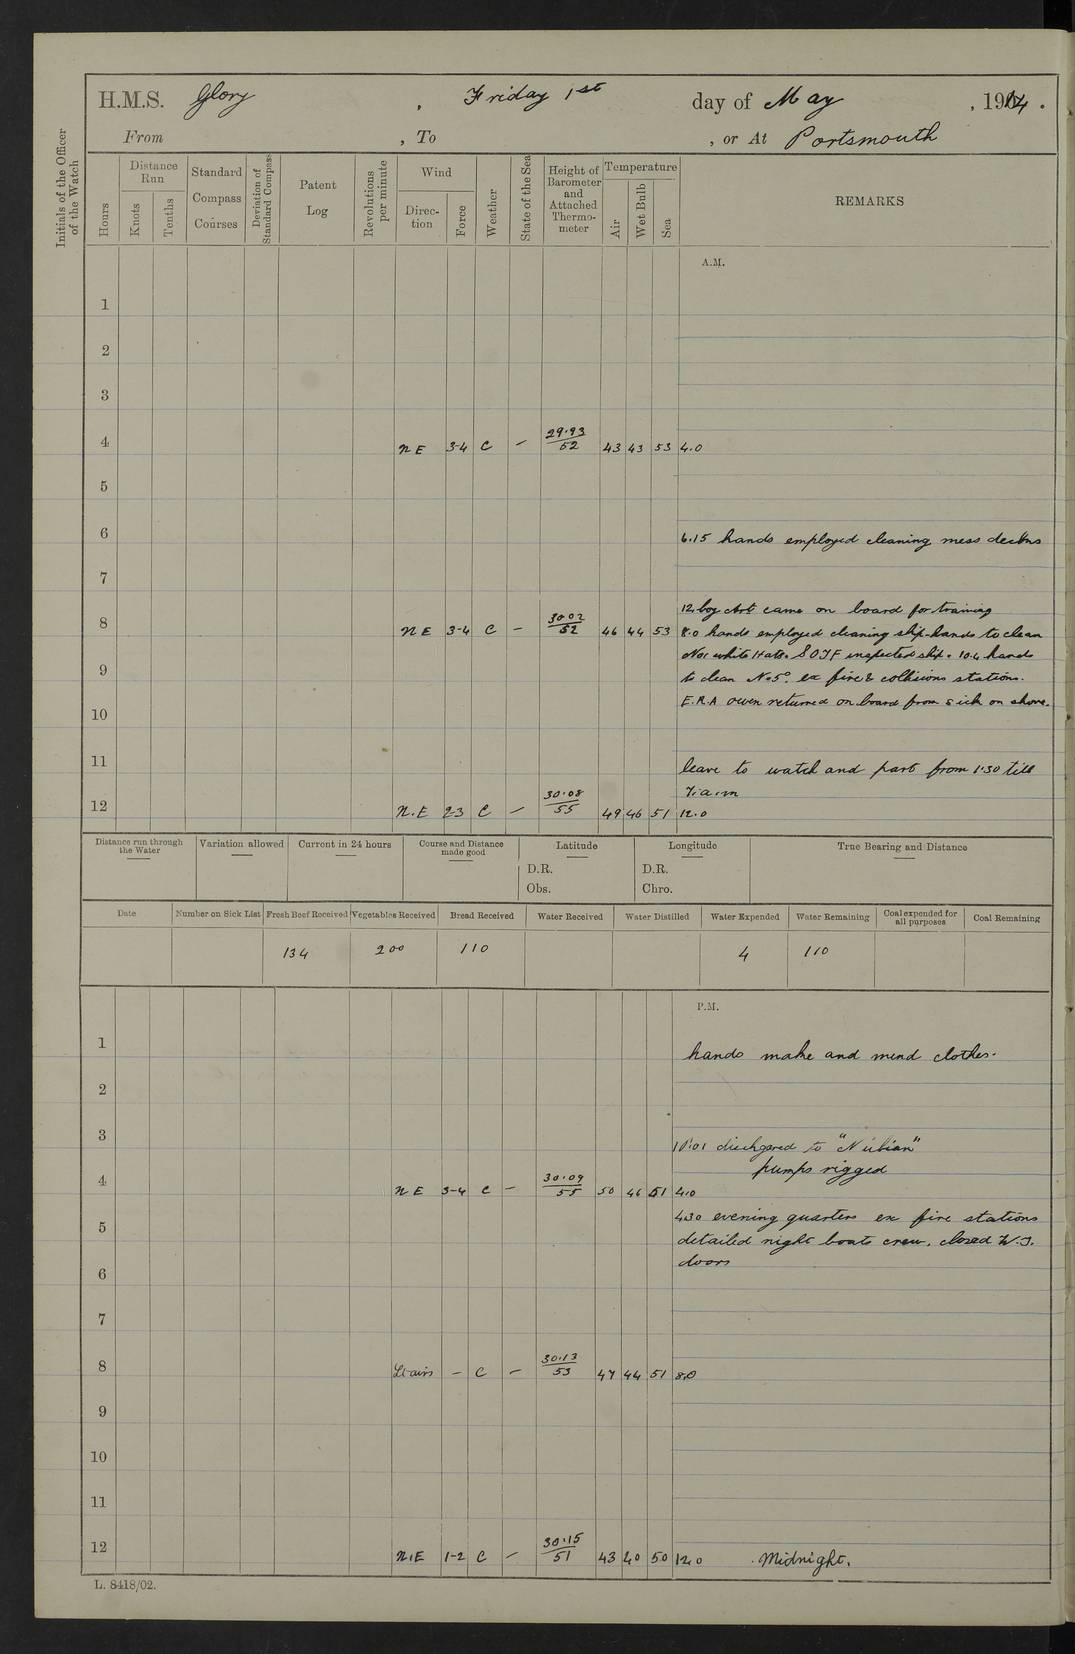 H.M.S. Glory, Friday 1st day of May, 1914.
From , To , or At Portsmouth
Initials of the Officer of the Watch
Hours
Distance Run
Knots
Tenths
Standard Compass Courses
Deviation of Standard Compass
Patent Log
Revolutions per minute
Wind
Direction
Force
Weather
State of the Sea
Height of Barometer and Attached Thermometer
Temperature
Air
Wet Bulb
Sea
REMARKS
A.M.
1
2
3
4 NE 3-4 C – 29.93/52 43 43 53 4.0
5
6 6.15 hands employed cleaning mess
7
12 boy came on board for training
8 NE 3-4 C – 30.02/52 46 44 53 8.0 hands employed cleaning ship-hands to clean
No1 white Hats. inspected ship. 10.4 hands
9 to clean No5. ex fire & collisions stations.
E.R.A Owen returned on board from sick on shore.
10
11 leave to watch and part from 1.30 till
7.a.m
12 N.E 23 C – 30.08/55 49 46 51 12.0
Distance run through the Water
Variation allowed
Current in 24 hours
Course and Distance made good
Latitude
D.R.
Obs.
Longitude
D.R.
Chro.
True Bearing and Distance
Date
Number on Sick List
Fresh Beef Received
Vegetables Received
Bread Received
Water Received
Water Distilled
Water Expended
Water Remaining
Coal expended for all purposes
Coal Remaining
134 200 110 4 110
P.M.
1 hands make and mend clothes.
2
3 to "Nubian"
pumps rigged
4 NE 3-4 C – 30.09/55 50 46 51 4.0
4.30 evening quarters ex fire stations
5 detailed night boats crew. closed W.T.
doors
6
7
8 Lt airs – C – 30.13/53 47 44 51 8.0
9
10
11
12 N.E 1-2 C – 30.15/51 43 40 50 12.0 Midnight.
L. 8418/02.